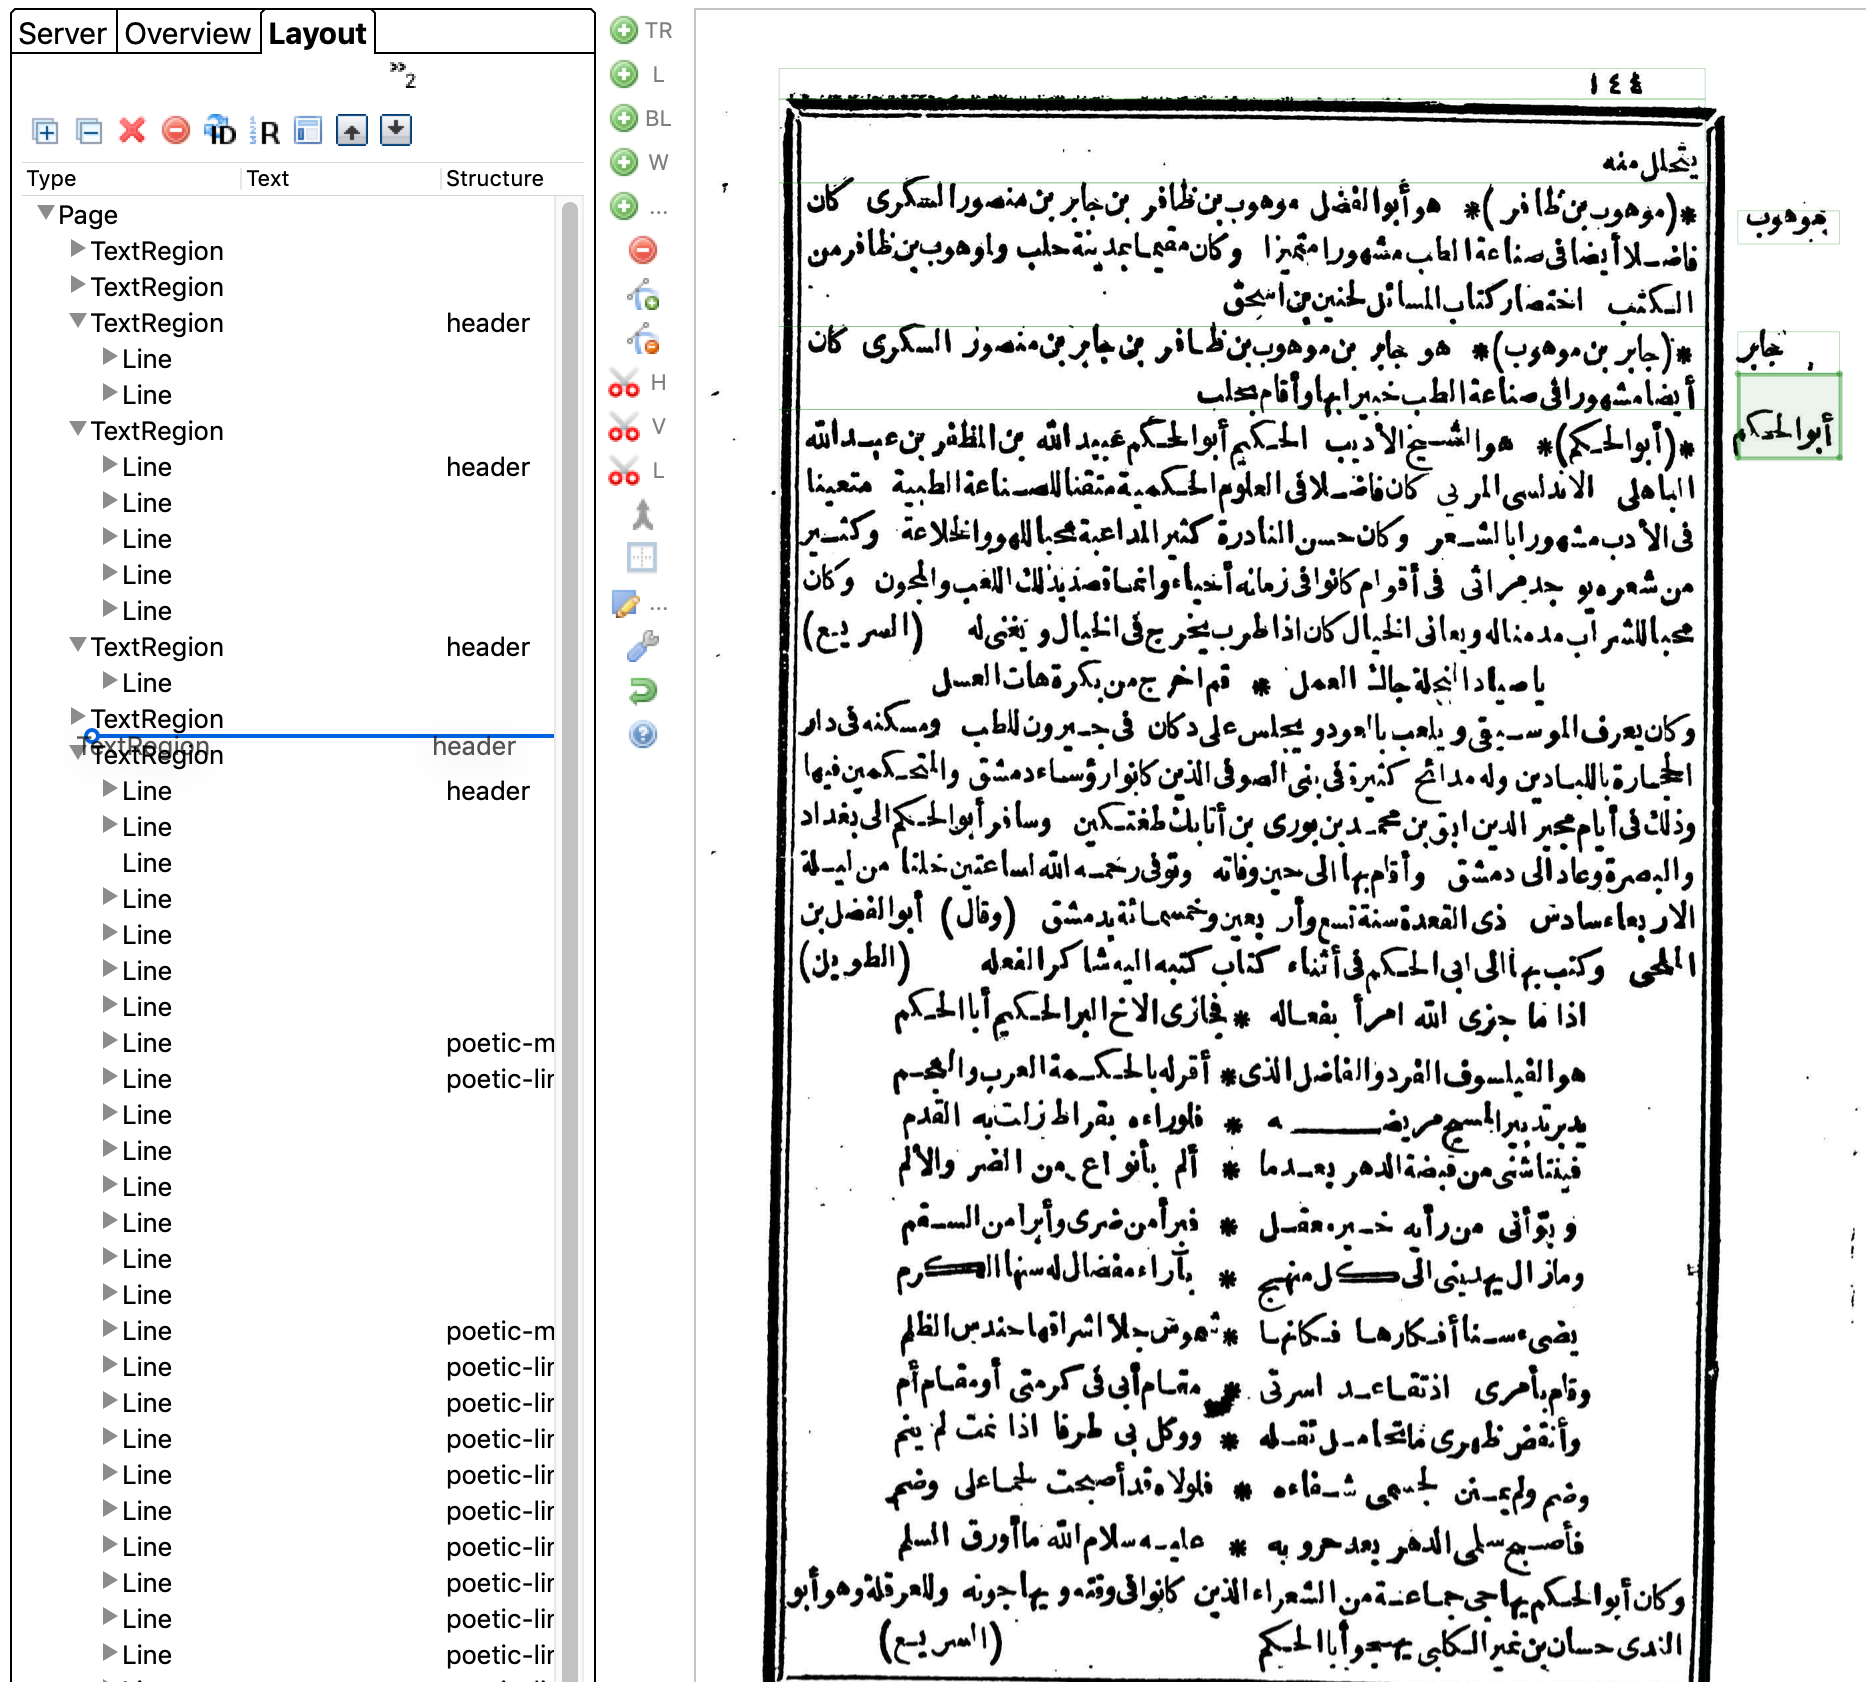 Server Overview Layout
»2
ID R
Type Text Structure
Page
TextRegion
TextRegion
TextRegion header
Line
Line
TextRegion
Line header
Line
Line
Line
Line
TextRegion header
Line
TextRegion
TextRegion header
TextRegion
Line header
Line
Line
Line
Line
Line
Line
Line poetic-m
Line poetic-lir
Line
Line
Line
Line
Line
Line
Line poetic-m
Line poetic-lir
Line poetic-lir
Line poetic-lir
Line poetic-lir
Line poetic-lir
Line poetic-lir
Line poetic-lir
Line poetic-lir
Line poetic-lir
TR
L
BL
W
...
H
V
L
...
١٤٤
يتحلل منه
*(موهوب بن ظافر)* هو أبو الفضل موهوب بن ظافر بن جابر بن منصور السكرى كان
موهوب
فاضلا أيضا فى صناعة الطب مشهورا متميزا وكان مقيما بمدينة حلب ولموهوب بن ظافر من
الكتب اختصار كتاب المسائل لحنين بن اسحق
*(جابر بن موهوب)* هو جابر بن موهوب بن ظافر بن جابر بن منصور السكرى كان
جابر
أيضا مشهورا فى صناعة الطب خبيرا بها وأقام بحلب
*(أبو الحكم)* هو الشيخ الأديب الحكيم أبو الحكم عبيد الله بن المظفر بن عبد الله
أبو الحكم
الباهلى الاندلسى المربى كان فاضلا فى العلوم الحكمية متقنا للصناعة الطبية متعينا
فى الأدب مشهورا بالشعر وكان حسن النادرة كثير المداعبة محبا للهو والخلاعة وكثير
من شعره يوجد مراثى فى أقوام كانوا فى زمانه أحياء وانما قصد بذلك اللعب والمجون وكان
محبا للشراب مدمنا له ويعانى الخيال كان اذا طرب يخرج فى الخيال ويغنى له (السريع)
يا صياد النحلة جاك العمل * قم اخرج من بكرة هات العسل
وكان يعرف الموسيقى ويلعب بالعود ويجلس على دكان فى جيرون للطب ومسكنه فى دار
الحجارة باللبادين وله مدائح كثيرة فى بنى الصوفى الذين كانوا رؤساء دمشق والمتحكمين فيها
وذلك فى أيام مجير الدين ابق بن محمد بن بورى بن أتابك طغتكين وسافر أبو الحكم الى بغداد
والبصرة وعاد الى دمشق وأقام بها الى حين وفاته وتوفى رحمه الله لساعتين خلتا من ليلة
الاربعاء سادس ذى القعدة سنة تسع وأربعين وخمسمائة بدمشق (وقال) أبو الفضل بن
الملحى وكتب بها الى ابى الحكم فى أثناء كتاب كتبه اليه شاكرا لفعله (الطويل)
اذا ما جزى الله امرأ بفعاله * فجازى الاخ البر الحكيم أبا الحكم
هو الفيلسوف الفرد والفاضل الذى * أقر له بالحكمة العرب والعجم
يدبر تدبير المسيح مريضه * فلو راءه بقراط زلت به القدم
فينتاشنى من قبضة الدهر بعدما * ألم بأنواع من الضر والألم
وبوّأنى من رأيه خير معقل * فبرأ من ضرى وأبرا من السقم
وما زال يهدينى الى كل منهج * بآراء مفضال له سنها الكرم
يضىء سنا أفكارها فكانها * شموس جلا اشراقها حندس الظلم
وقام بأمرى اذ تقاعد اسرتى * مقام أبى فى كرمتى أو مقام أم
وأنقض ظهرى ما تحامل ثقله * ووكل بى طرفا اذا نمت لم ينم
وضم ولم يمنن لجسمى شفاءه * فلولاه قد أصبحت لحما على وضم
فأصبح سلمى الدهر بعد حروبه * عليه سلام الله ما أورق السلم
وكان أبو الحكم يهاجى جماعة من الشعراء الذين كانوا فى وقته ويهاجونه وللعرقلة وهو أبو
الندى حسان بن نمير الكلبى يهجو أبا الحكم (السريع)